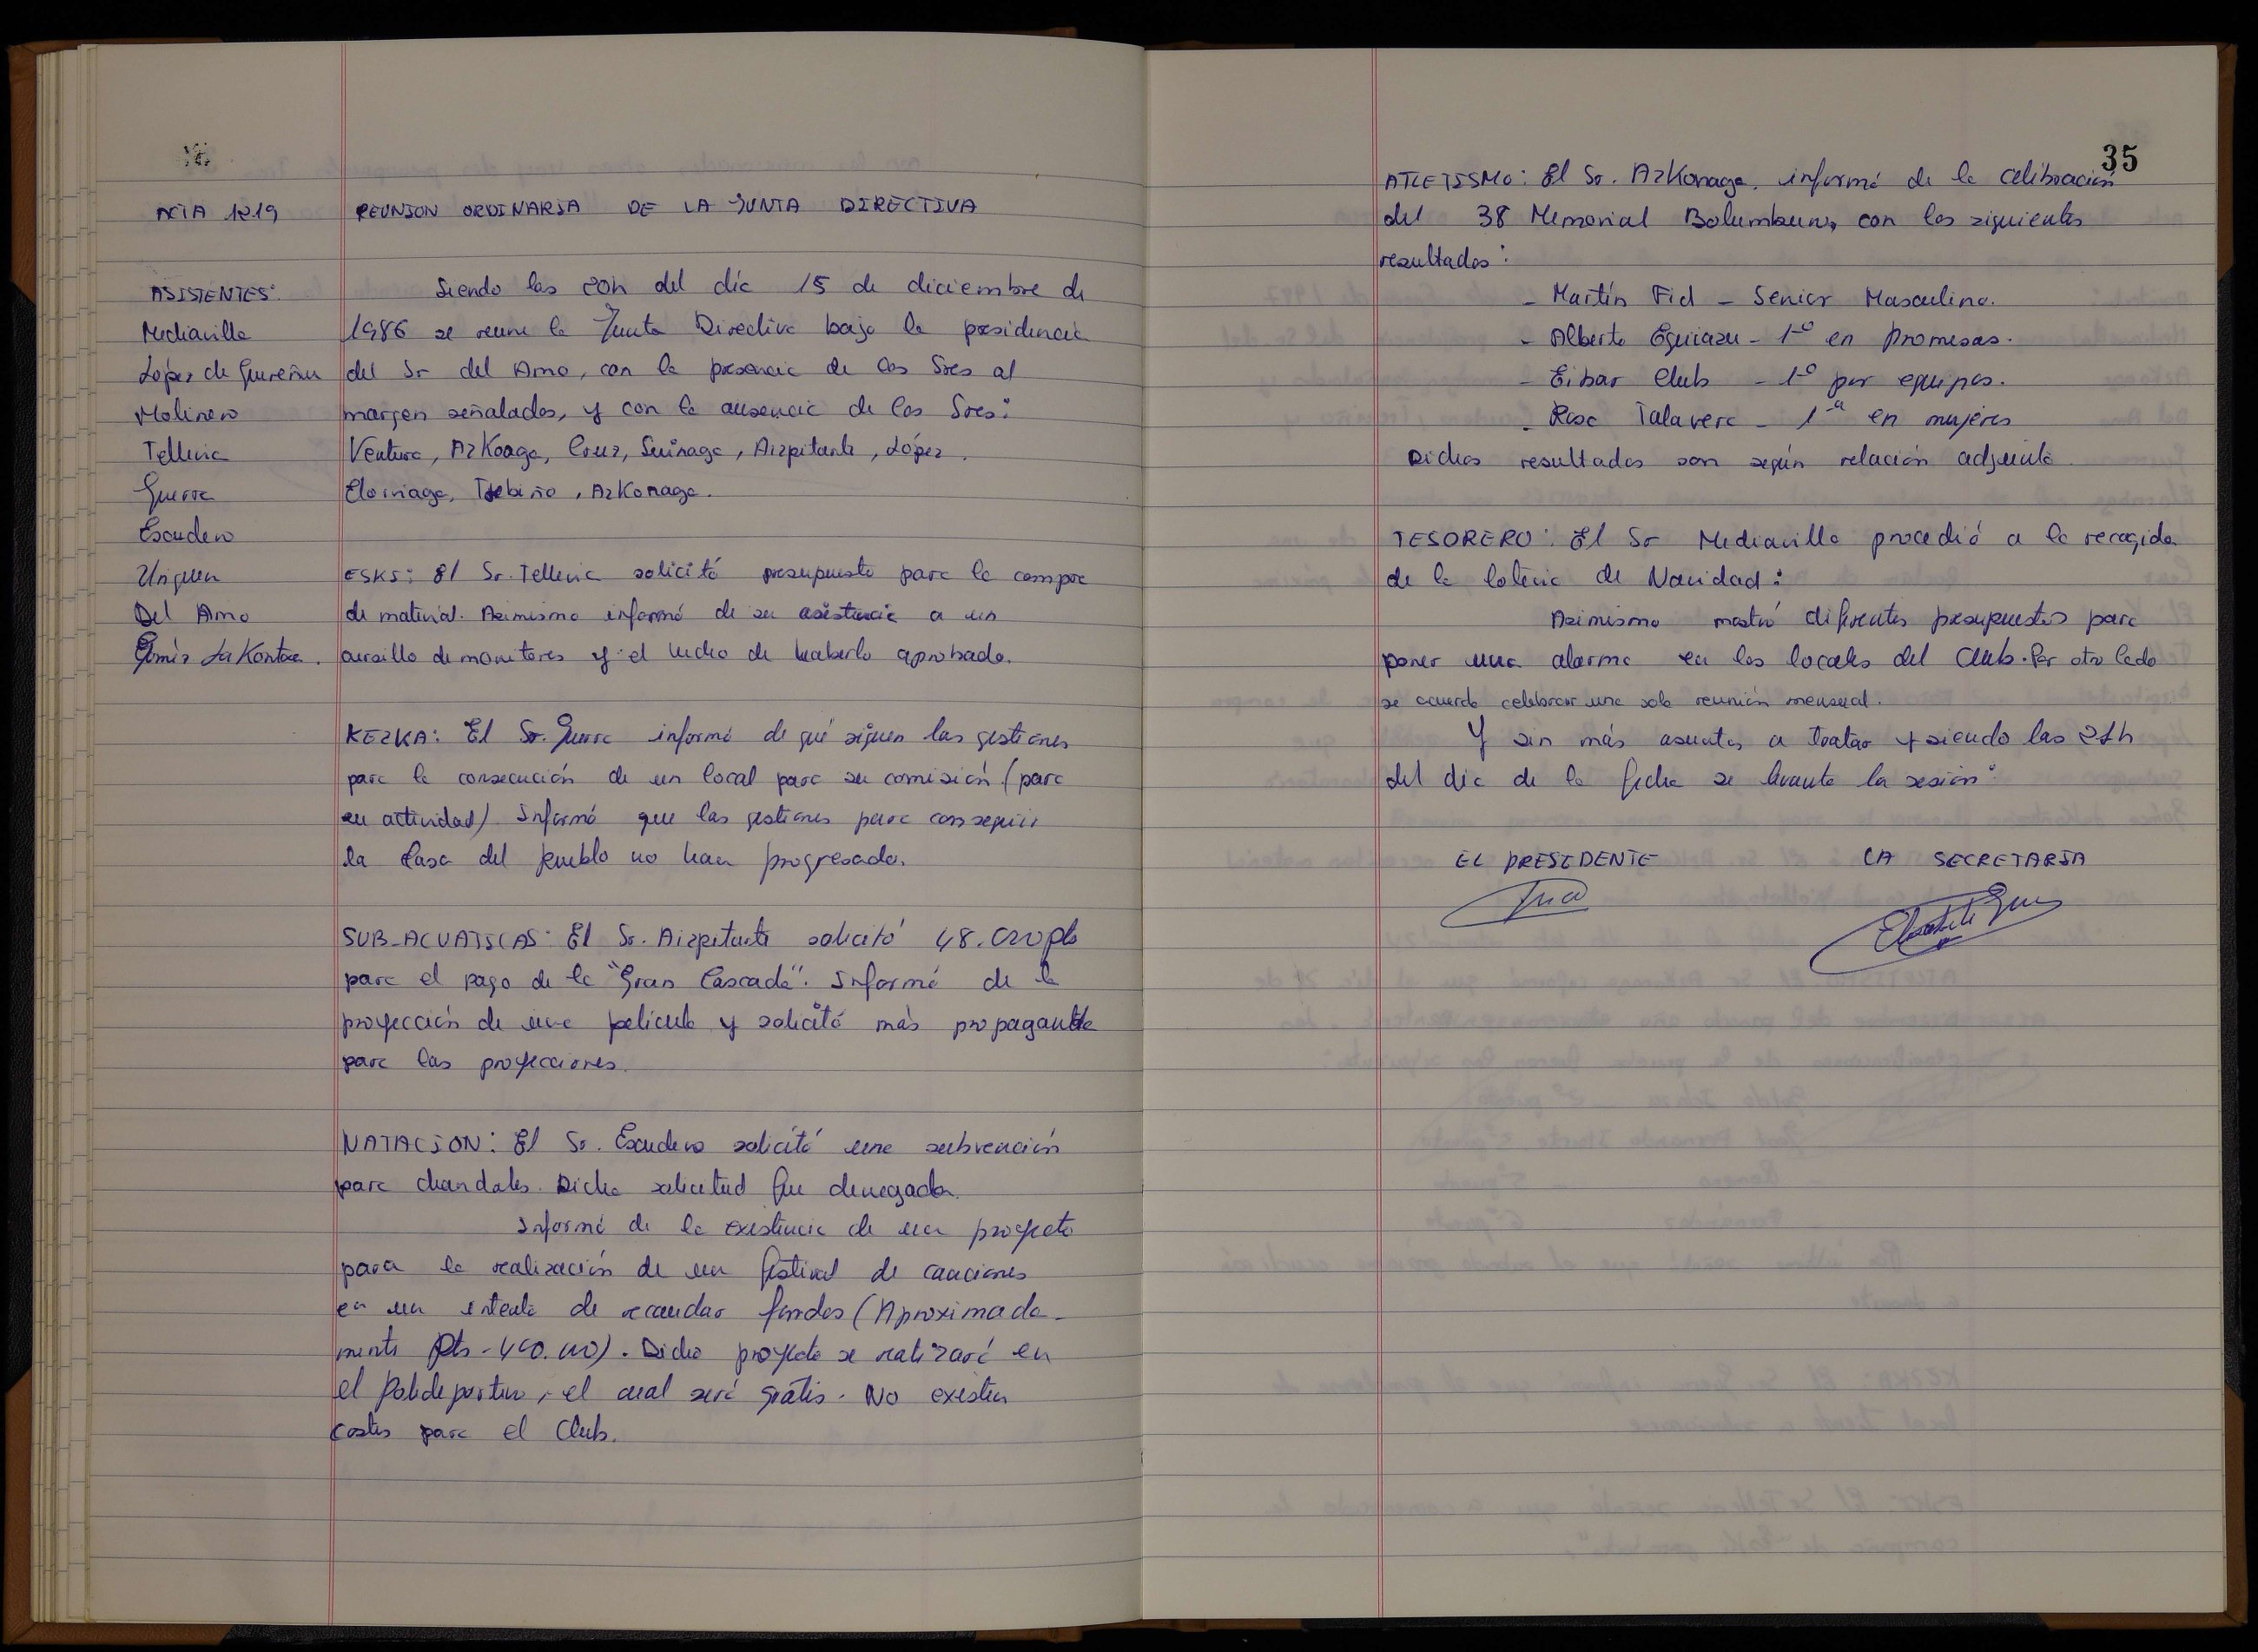 ACTA 1219
REUNION ORDINARIA DE LA JUNTA DIRECTIVA
ASISTENTES:
Mediavilla
López de Guereñu
Molinero
Telleria
Guerra
Escudero
Uriguen
Del Amo
Gómez Lakontxa.
Siendo las 20h del día 15 de diciembre de
1986 se reune la Junta Directiva bajo la presidencia
del Sr del Amo, con la presencia de los Sres al
margen señalados, y con la ausencia de los Sres:
Ventura, Azkoaga, Cruz, Suinaga, Aizpitarte, López,
Elorriaga, Trebiño, Azkonaga.
ESKI: El Sr. Telleria solicitó presupuesto para la compra
de material. Asimismo informó de su asistencia a un
cursillo de monitores y el hecho de haberlo aprobado.
KEZKA: El Sr. Guerra informó de qué siguen las gestiones
para la consecución de un local para su comisión (para
su actividad) Informó que las gestiones para conseguir
la Casa del pueblo no han progresado.
SUB-ACUATICAS: El Sr. Aizpitarte solicitó 48.000 pts
para el pago de la "Gran Cascada". Informó de la
proyección de una pelicula y solicitó más propaganda
para las proyecciones.
NATACION: El Sr. Escudero solicitó una subvención
para chandales. Dicha solicitud fue denegada.
Informó de la existencia de un proyecto
para la realización de un festival de canciones
en un intento de recaudar fondos (Aproximada-
mente Pts - 400.000). Dicho proyecto se realizará en
el Polideportivo, el cual será gratis. No existen
costes para el Club.
35
ATLETISMO: El Sr. Azkonaga, informó de la celebración
del 38 Memorial Bolumburu, con los siguientes
resultados:
- Martín Fid - Senior Masculino.
- Alberto Eguiazu - 1º en Promesas.
- Eibar Club - 1º por equipos.
- Rosa Talavera - 1ª en mujeres
Dichos resultados son según relación adjunta
TESORERO: El Sr Mediavilla procedió a la recogida
de la lotería de Navidad:
Asimismo mostró diferentes presupuestos para
poner una alarma en los locales del Club. Por otro lado
se acuerda celebrar una sola reunión mensual.
Y sin más asuntos a tratar y siendo las 21h
del día de la fecha se levanta la sesión:
EL PRESIDENTE LA SECRETARIA